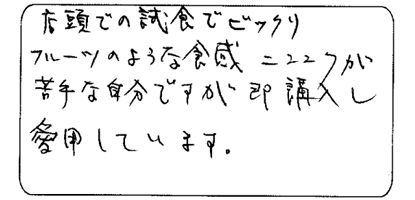 店頭での試食でビックリ
フルーツのような食感 ニンニクが
苦手な自分ですが 即購入し
愛用しています。